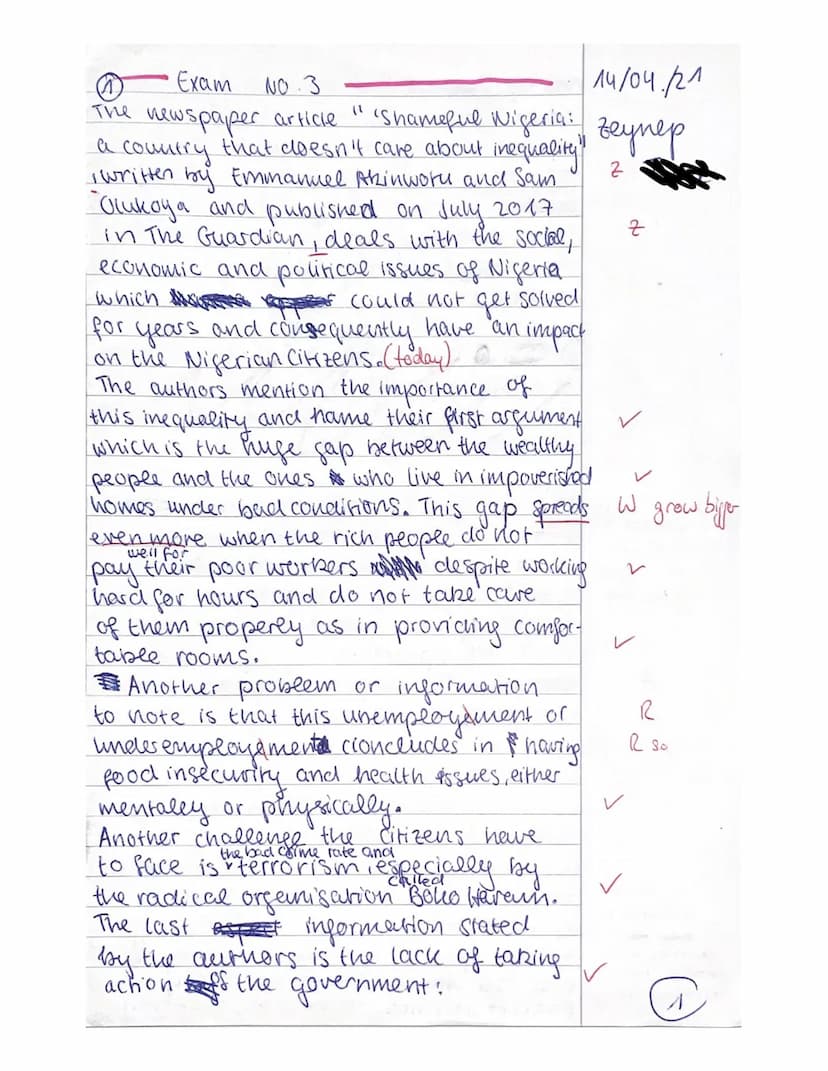 ① Exam No. 3 14/04/21
The newspaper article "'Shameful Nigeria: Zeynep
a country that doesn't care about inequality"
, written by Emmanuel Akinwotu and Sam Z
Olukoya and published on July 2017
in The Guardian, deals with the social, Z
economic and political issues of Nigeria
which could not get solved
for years and consequently have an impact
on the Nigerian Citizens. (today)
The authors mention the importance of
this inequality and name their first argument ✓
which is the huge gap between the wealthy
people and the ones who live in impoverished ✓
homes under bad conditions. This gap spreads W grow bigger
even more when the rich people do not
well for
pay their poor workers despite working ✓
hard for hours and do not take care
of them properly as in providing comfor- ✓
table rooms.
Another problem or information
to note is that this unemployement or R
underemployement cloncludes in having R so
food insecurity and health issues, either
mentally or physically. ✓
Another challenge the citizens have
the bad crime rate and
to face is terrorism, especially by
called
the radical organisation Boko Haram. ✓
The last information stated
by the authors is the lack of taking
action of the government: ✓
1